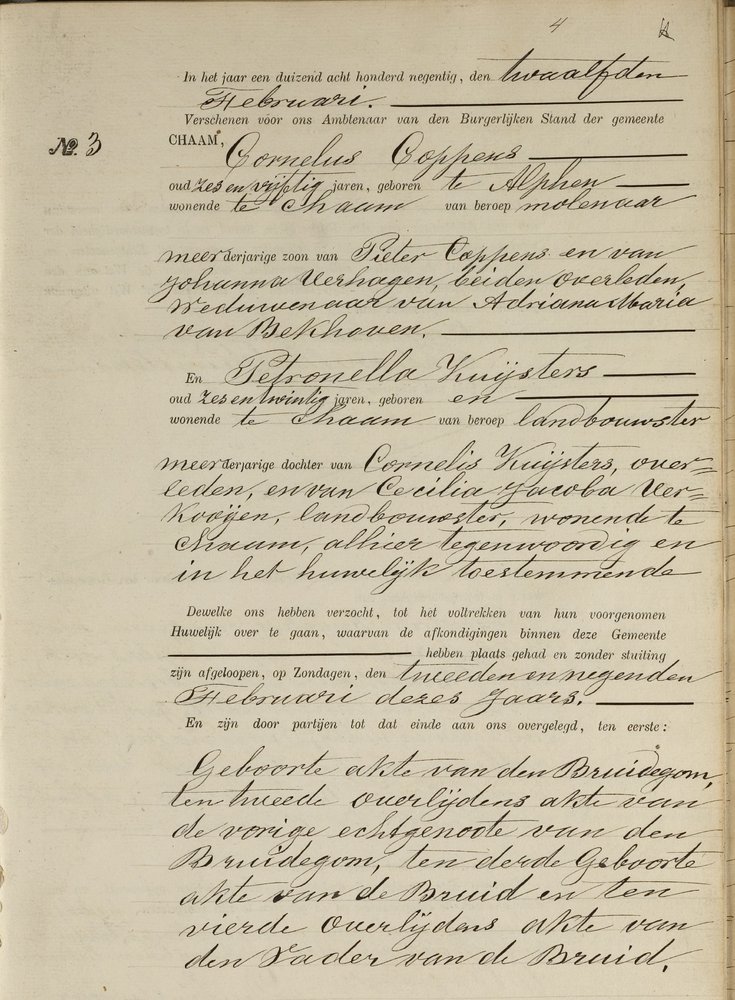 4
In het jaar een duizend acht honderd negentig, den twaalfden
Februari.
Verschenen vóór ons Ambtenaar van den Burgerlijken Stand der gemeente
No. 3
CHAAM, Cornelus Coppens
oud zes en vijftig jaren, geboren te Alphen
wonende te Chaam van beroep molenaar
meerderjarige zoon van Pieter Coppens en van
Johanna Verhagen, beiden overleden,
Weduwenaar van Adriana Maria
van Bekhoven.
En Petronella Kuijsters
oud zes en twintig jaren, geboren en
wonende te Chaam van beroep landbouwster
meerderjarige dochter van Cornelis Kuijsters, over=
leden, en van Cecilia Jacoba Ver=
kooijen, landbouwster, wonende te
Chaam, alhier tegenwoordig en
in het huwelijk toestemmende
Dewelke ons hebben verzocht, tot het voltrekken van hun voorgenomen
Huwelijk over te gaan, waarvan de afkondigingen binnen deze Gemeente
hebben plaats gehad en zonder stuiting
zijn afgeloopen, op Zondagen, den tweeden en negenden
Februari dezes Jaars.
En zijn door partijen tot dat einde aan ons overgelegd, ten eerste:
Geboorte akte van den Bruidegom,
ten tweede overlijdens akte van
de vorige echtgenoote van den
Bruidegom, ten derde Geboorte
akte van de Bruid en ten
vierde overlijdens akte van
den Vader van de Bruid.